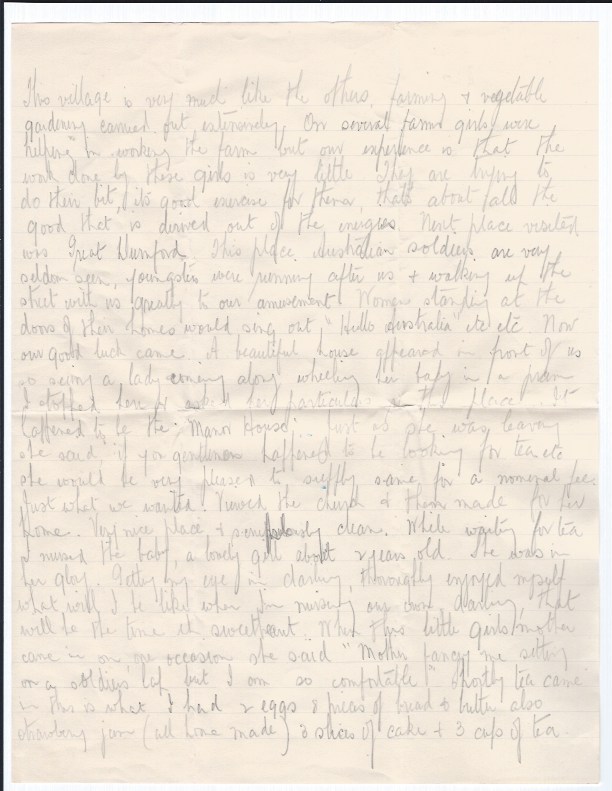 This village is very much like the others, farming & vegetable
gardening carried out extensively. On several farms girls were
helping in working the farm but our experience is that the
work done by these girls is very little. They are trying to
do their bit, it's good exercise for them, that's about all the
good that is derived out of the energies. Next place visited
was Great Durnford. This place Australian soldiers are very
seldom seen, youngsters were running after us & walking up the
street with us greatly to our amusement. Women standing at the
doors of their homes would sing out "Hello Australia" etc etc. Now
our good luck came. A beautiful house appeared in front of us
so seeing a lady coming along wheeling her baby in a pram
I stopped here & asked her particulars of the place. It
happened to be the "Manor House". Just as she was leaving
she said, if you gentlemen happened to be looking for tea etc
she would be very pleased to supply same for a nominal fee.
Just what we wanted. Viewed the church & then made for her
home. Very nice place & scrupulously clean. While waiting for tea
I nursed the baby, a lovely girl about 2 years old. She was in
her glory. Getting my eye in darling, thoroughly enjoyed myself
what will I be like when I'm nursing our own darling, that
will be the time eh sweetheart. When this little girls mother
came in on one occasion she said "Mother fancy me sitting
on a soldiers lap but I am so comfortable" Shortly tea came
in this is what I had 2 eggs 8 pieces of bread & butter also
strawberry jam (all home made) 3 slices of cake & 3 cups of tea.